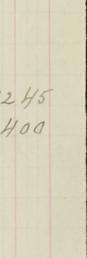 245
400